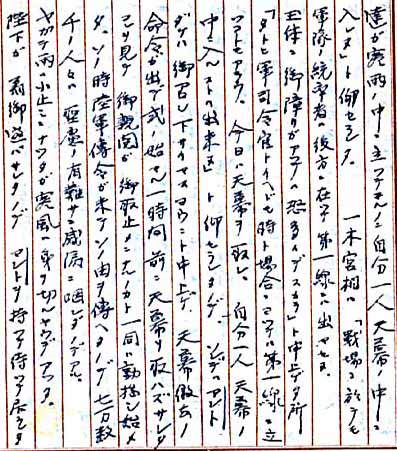 達ガ寒雨ノ中ニ立ツテヰルノニ自分一人天幕ノ中ニ
入レヌ」ト仰セラレタ。 一木宮相ハ「戦場ニ於テモ
軍隊ノ統率者ハ後方ニ在ツテ第一線ニ出マセヌ。
玉体ニ御障リガアツテハ恐多イデスカラ」ト申上ゲタ所
「タトヒ軍司令官トイヘドモ時ト場合ニヨツテハ第一線ニ立
ツコトモアラウ。今日ハ天幕ヲ取レ。自分一人天幕ノ
中ニ入ルコトハ出来ヌ」ト仰セラレタノデ ソレデハマント
ダケハ御召シ下サイマスヤウニト申上ゲ 天幕撤去ノ
命令ガ出デ式ノ始マル一時間前ニ天幕ヲ取ハズサレタ
コレヲ見テ御親閲ガ御取止メニナルノカト一同ハ動揺シ始メ
タ。ソノ時陸軍傳令ガ来テソノ由ヲ傳ヘタノデ七万数
千ノ人々ハ聖慮ノ有難サニ感涙ニ咽ンダノデアル。
ヤガテ雨ハ小止ミニナツタガ寒風ハ身ヲ切ルヤウデアツタ。
陛下ガ御遊バサレタノデ マントヲ持ツテ待ツテ居ラレタ